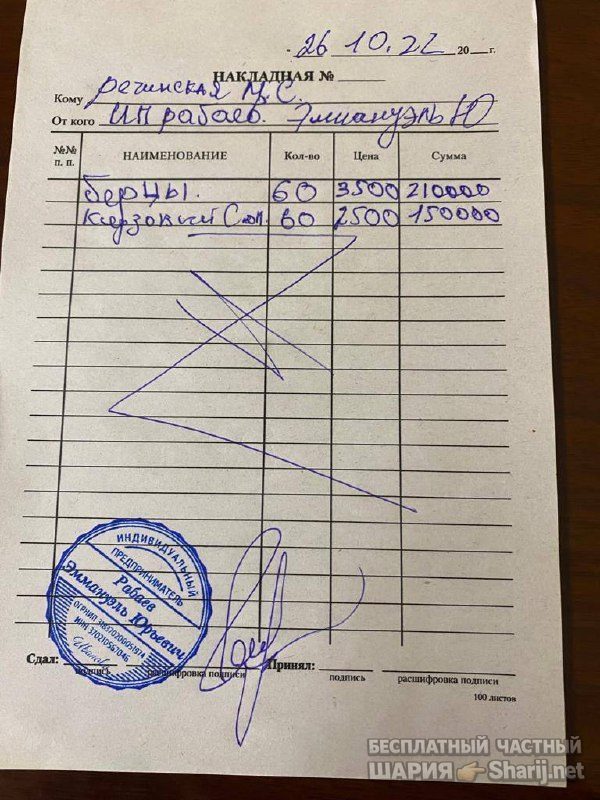 26 10.22 20 г.
НАКЛАДНАЯ №
Кому Речинская М.С.
От кого ИП рабаев. Эммануэль Ю
№№ п. п. НАИМЕНОВАНИЕ Кол-во Цена Сумма
Берцы. 60 3500 210000
60 2500 150000
ИНДИВИДУАЛЬНЫЙ
ПРЕДПРИНИМАТЕЛЬ
Рабаев
Эммануэль Юрьевич
ОГРНИП
ИНН
Сдал: Принял:
подпись расшифровка подписи подпись расшифровка подписи
100 листов
БЕСПЛАТНЫЙ ЧАСТНЫЙ
ШАРИЯ Sharij.net